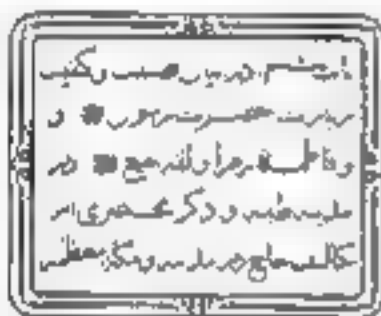 باب ششم در بیان و
زیارت حضرت و
و فاطمه زهرا و ائمه بقیع در
مدینه طیبه و ذکر مختصری از
تکالیف حاج در مدینه و مکه معظمه